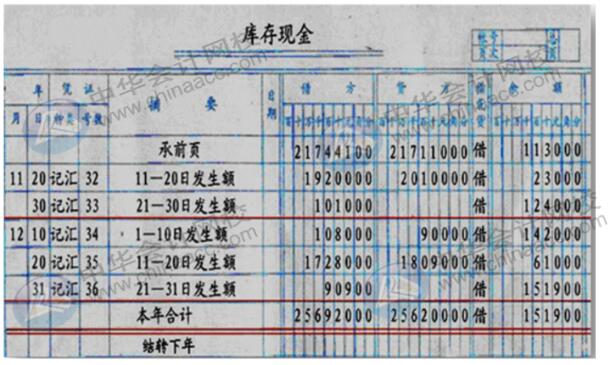 库存现金
帐号 总页
页次
年 凭证 摘要 日期 借方 贷方 借或贷 余额
月 日 种类 号数 百十万千百十元角分 百十万千百十元角分 百十万千百十元角分
承前页 21744100 21711000 借 113000
11 20 记汇 32 11—20日发生额 1920000 2010000 借 23000
30 记汇 33 21—30日发生额 101000 借 124000
12 10 记汇 34 1—10日发生额 108000 90000 借 142000
20 记汇 35 11—20日发生额 1728000 1809000 借 61000
31 记汇 36 21—31日发生额 90900 借 151900
本年合计 25692000 25620000 借 151900
结转下年
中华会计网校
www.chinaacc.com